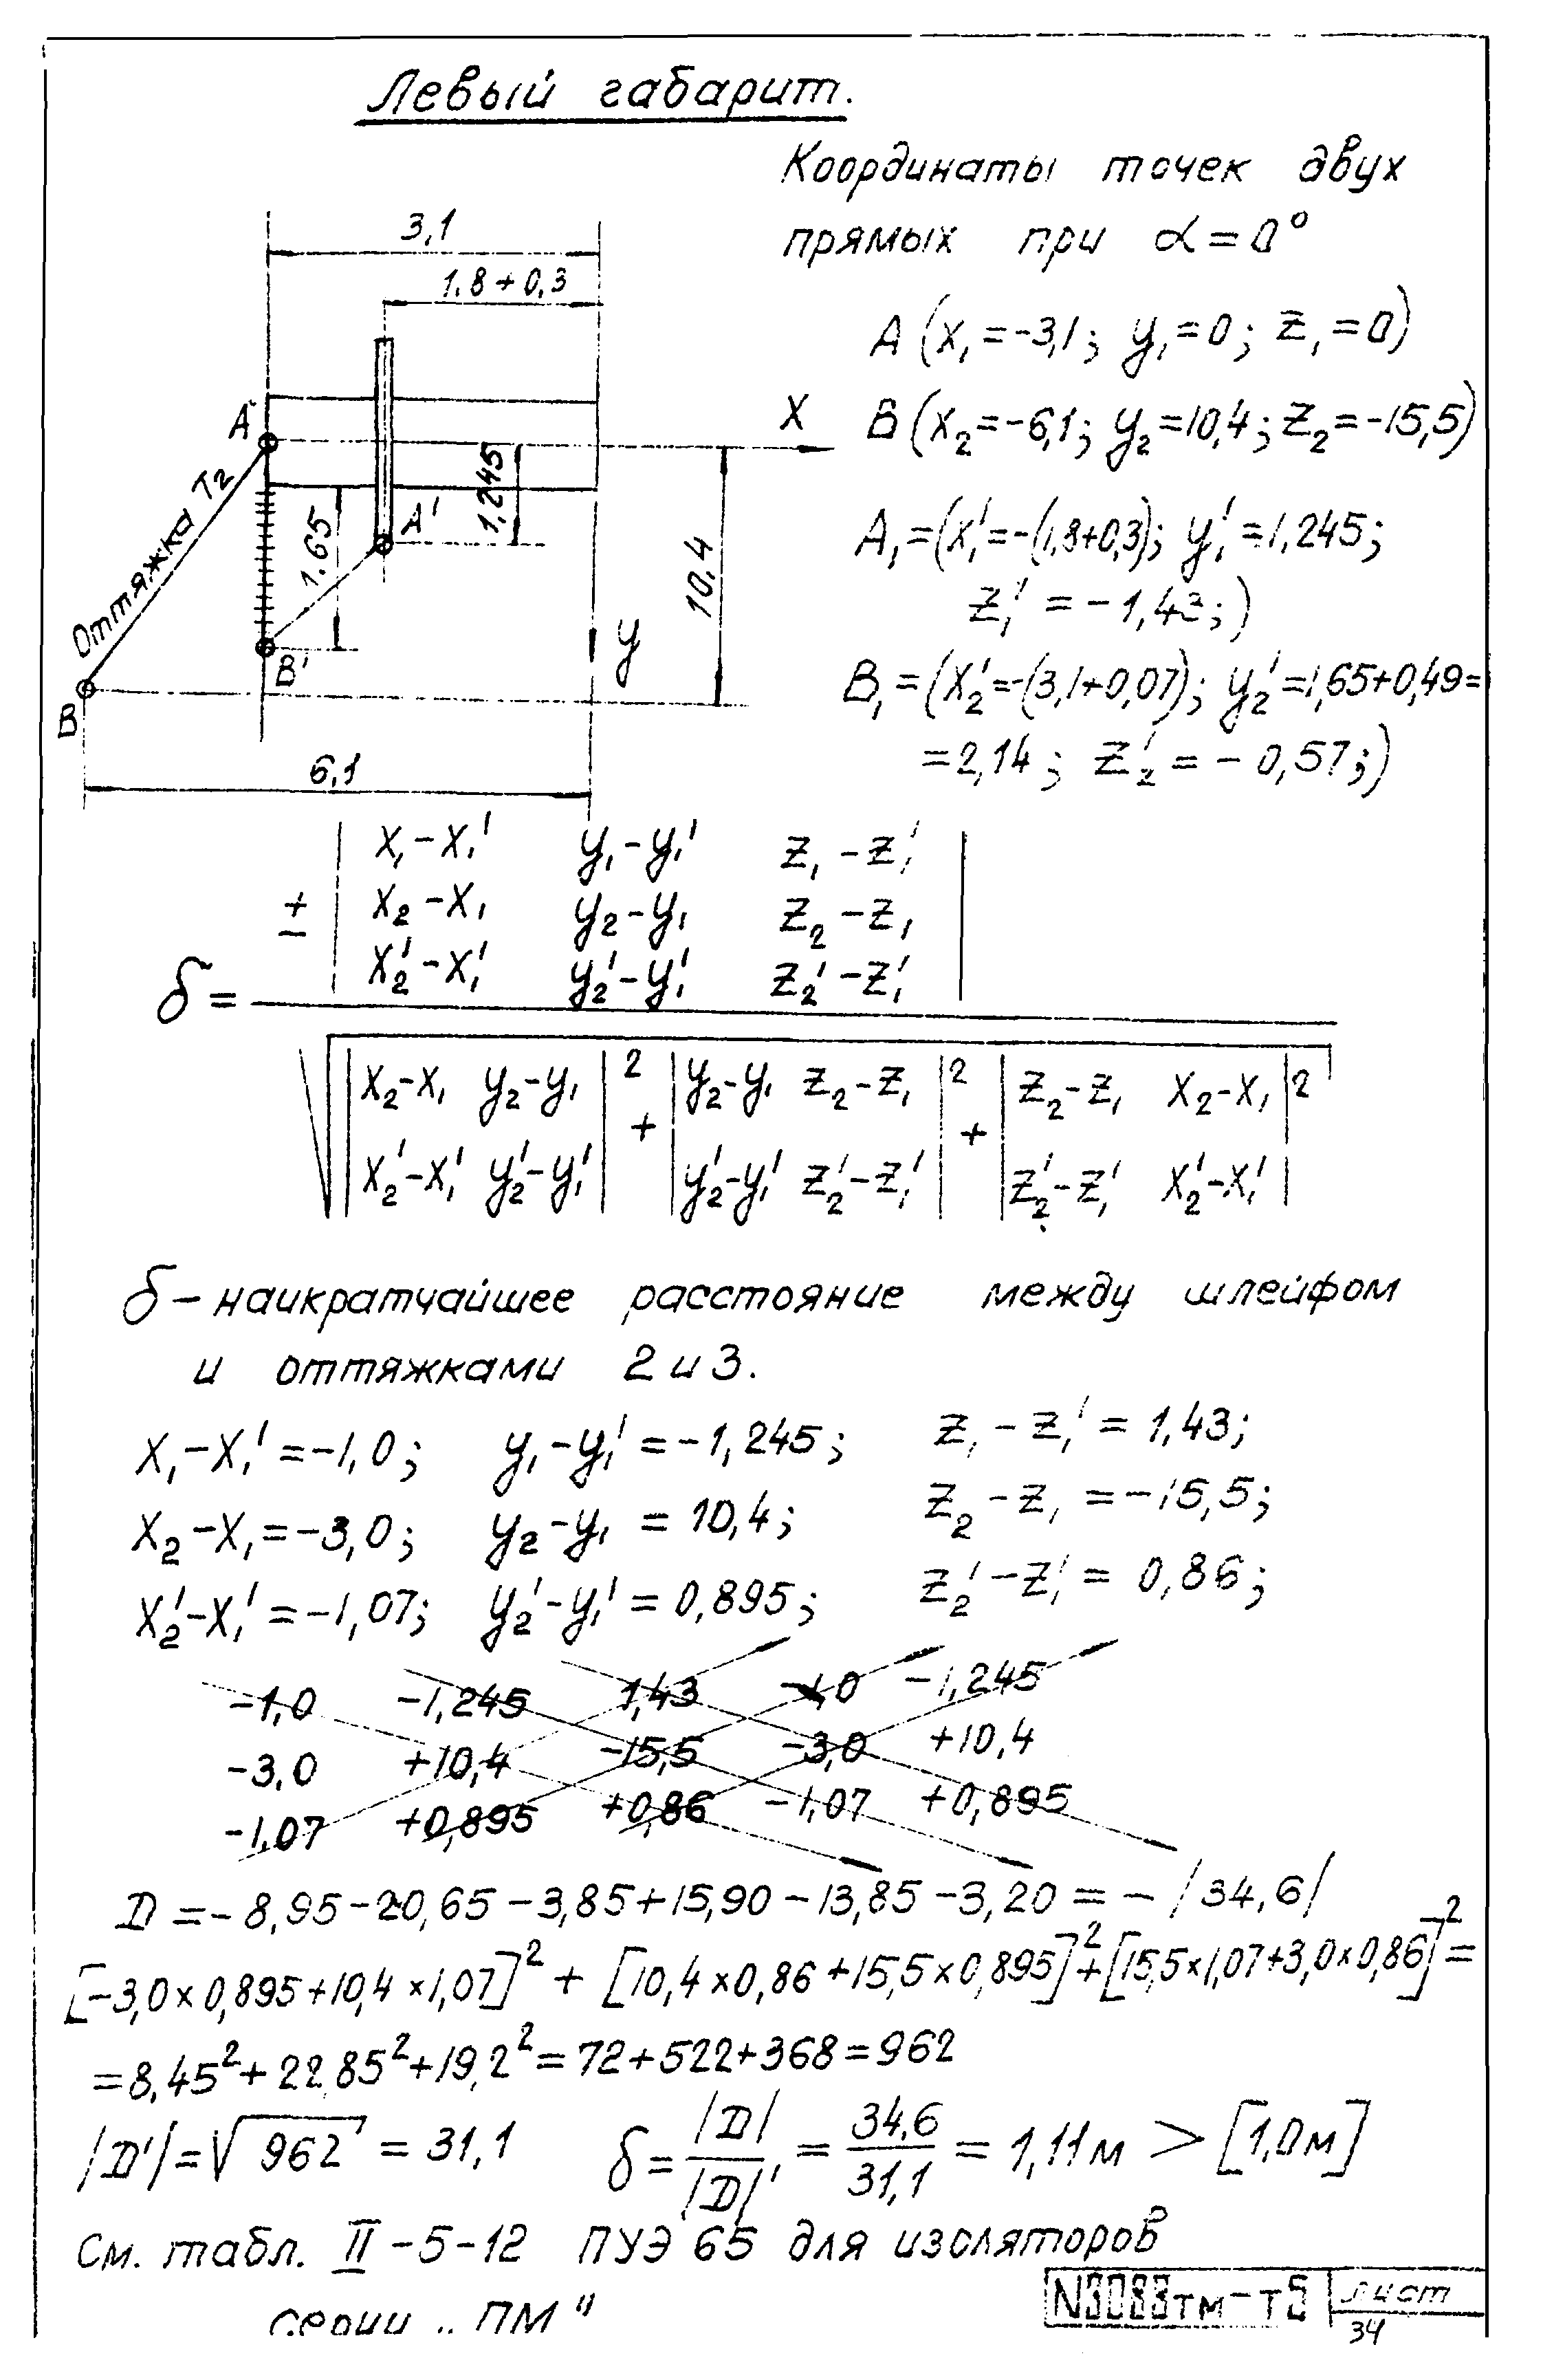 Левый габарит.
Координаты точек двух
прямых при α=0°
A (x₁=-3,1; y₁=0; z₁=0)
B (x₂=-6,1; y₂=10,4; z₂=-15,5)
A₁=(x₁'=-(1,8+0,3); y₁'=1,245;
z₁'=-1,43;)
B₁=(x₂'=-(3,1+0,07); y₂'=1,65+0,49=
=2,14; z₂'=-0,57;)
3,1
1,8+0,3
A
X
Оттяжка Т2
1.65
A'
1,245
10,4
B'
y
B
6,1
± | x₁-x₁' y₁-y₁' z₁-z₁' |
| x₂-x₁ y₂-y₁ z₂-z₁ |
| x₂'-x₁' y₂'-y₁' z₂'-z₁' |
δ=
√ | x₂-x₁ y₂-y₁ |² + | y₂-y₁ z₂-z₁ |² + | z₂-z₁ x₂-x₁ |²
| x₂'-x₁' y₂'-y₁' | | y₂'-y₁' z₂'-z₁' | | z₂'-z₁' x₂'-x₁' |
δ – наикратчайшее расстояние между шлейфом
и оттяжками 2 и 3.
x₁-x₁'=-1,0; y₁-y₁'=-1,245; z₁-z₁'=1,43;
x₂-x₁=-3,0; y₂-y₁=10,4; z₂-z₁=-15,5;
x₂'-x₁'=-1,07; y₂'-y₁'=0,895; z₂'-z₁'=0,86;
-1,0 -1,245 1,43 -1,0 -1,245
-3,0 +10,4 -15,5 -3,0 +10,4
-1,07 +0,895 +0,86 -1,07 +0,895
D=-8,95-20,65-3,85+15,90-13,85-3,20=-/34,6/
[-3,0×0,895+10,4×1,07]²+[10,4×0,86+15,5×0,895]²+[15,5×1,07+3,0×0,86]²=
=8,45²+22,85²+19,2²=72+522+368=962
/D'/=√962=31,1 δ=/D/ / /D/'=34,6/31,1=1,11м > [1,0м]
См. табл. II-5-12 ПУЭ 65 для изоляторов
серии „ПМ"
N3083тм-т5 лист
34